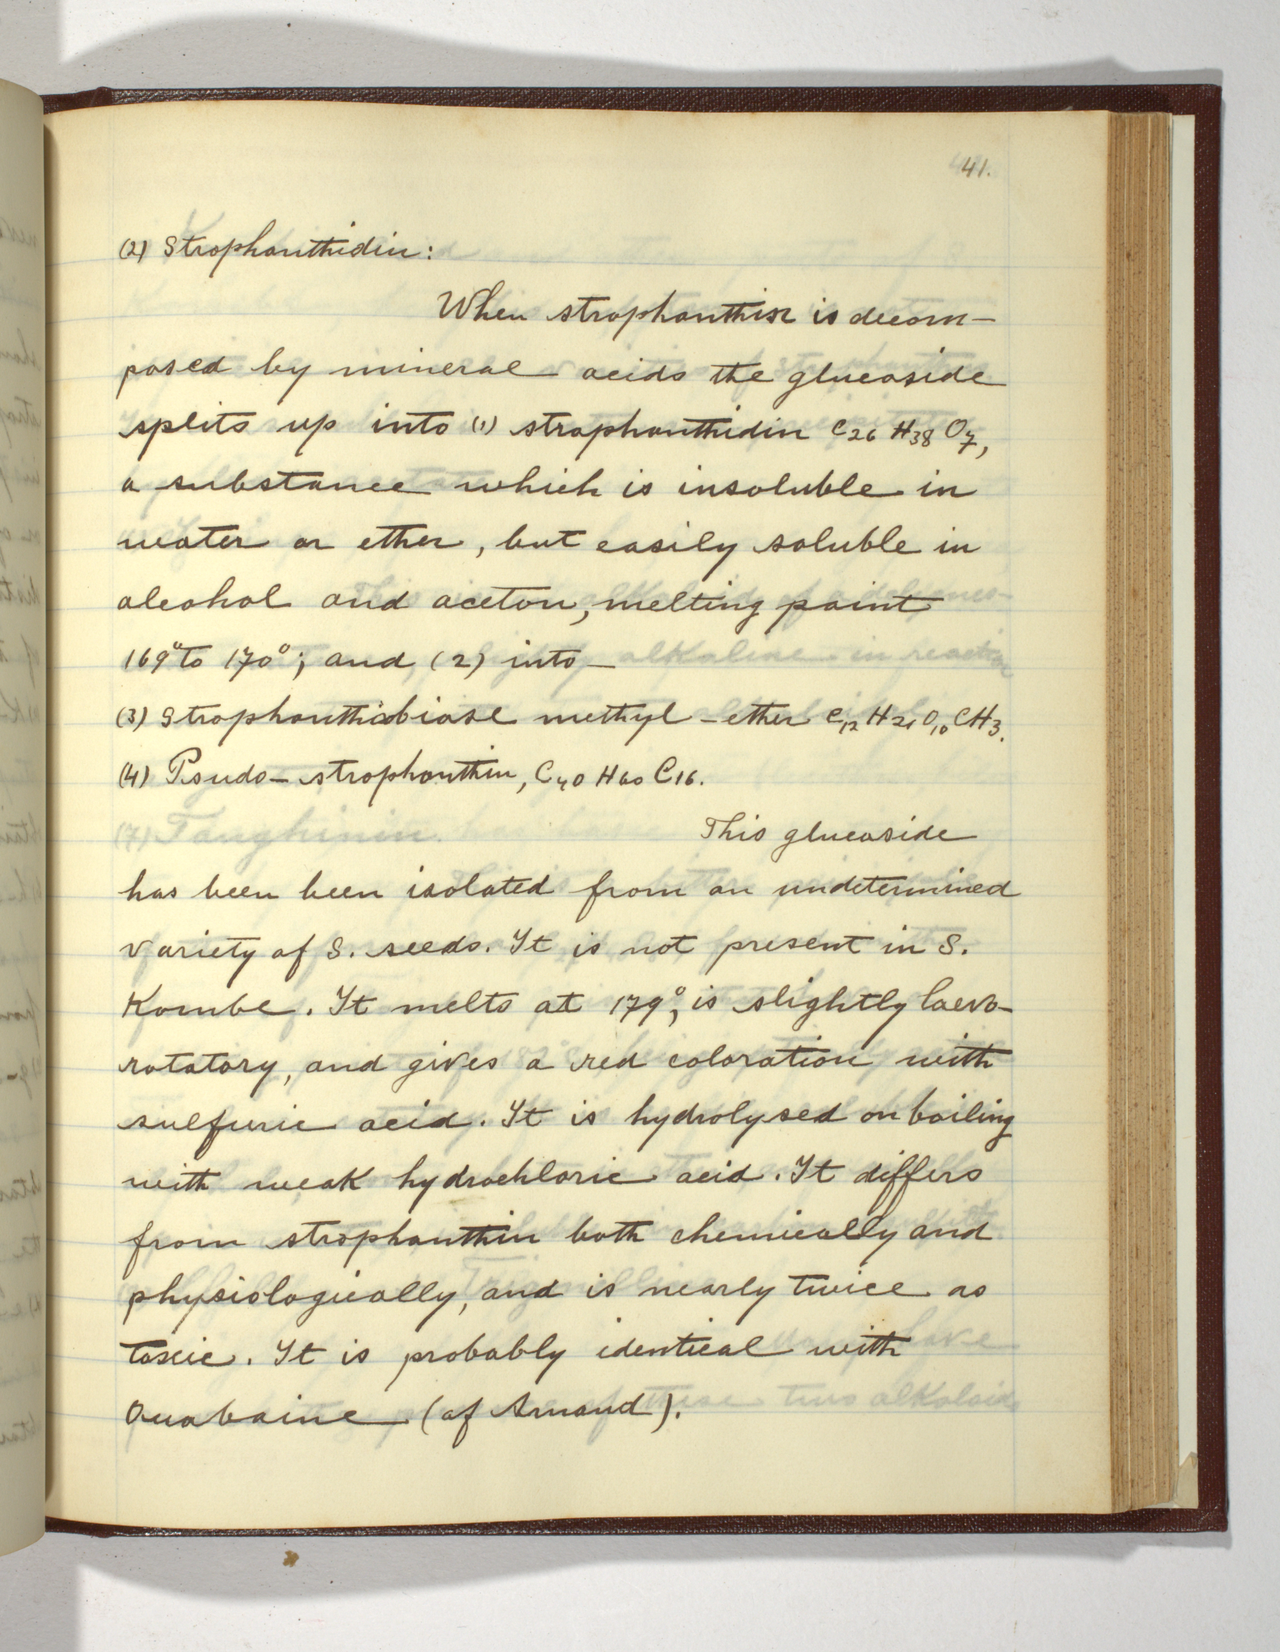 41.
(2) Strophanthidin:
When strophanthin is decom-
posed by mineral acids the glucoside
splits up into (1) strophanthidin C26 H38 O7,
a substance which is insoluble in
water or ether, but easily soluble in
alcohol and aceton, melting point
169° to 170°; and (2) into -
(3) Strophanthobiase methyl-ether C12 H21 O10 CH3.
(4) Psudo-strophanthin, C40 H60 C16.
This glucoside
has been been isolated from an undetermined
variety of S. seeds. It is not present in S.
Kombe. It melts at 179°, is slightly laevo-
rotatory, and gives a red coloration with
sulfuric acid. It is hydrolysed on boiling
with weak hydrochloric acid. It differs
from strophanthin both chemically and
physiologically, and is nearly twice as
toxic. It is probably identical with
Ouabaine (of Arnaud).